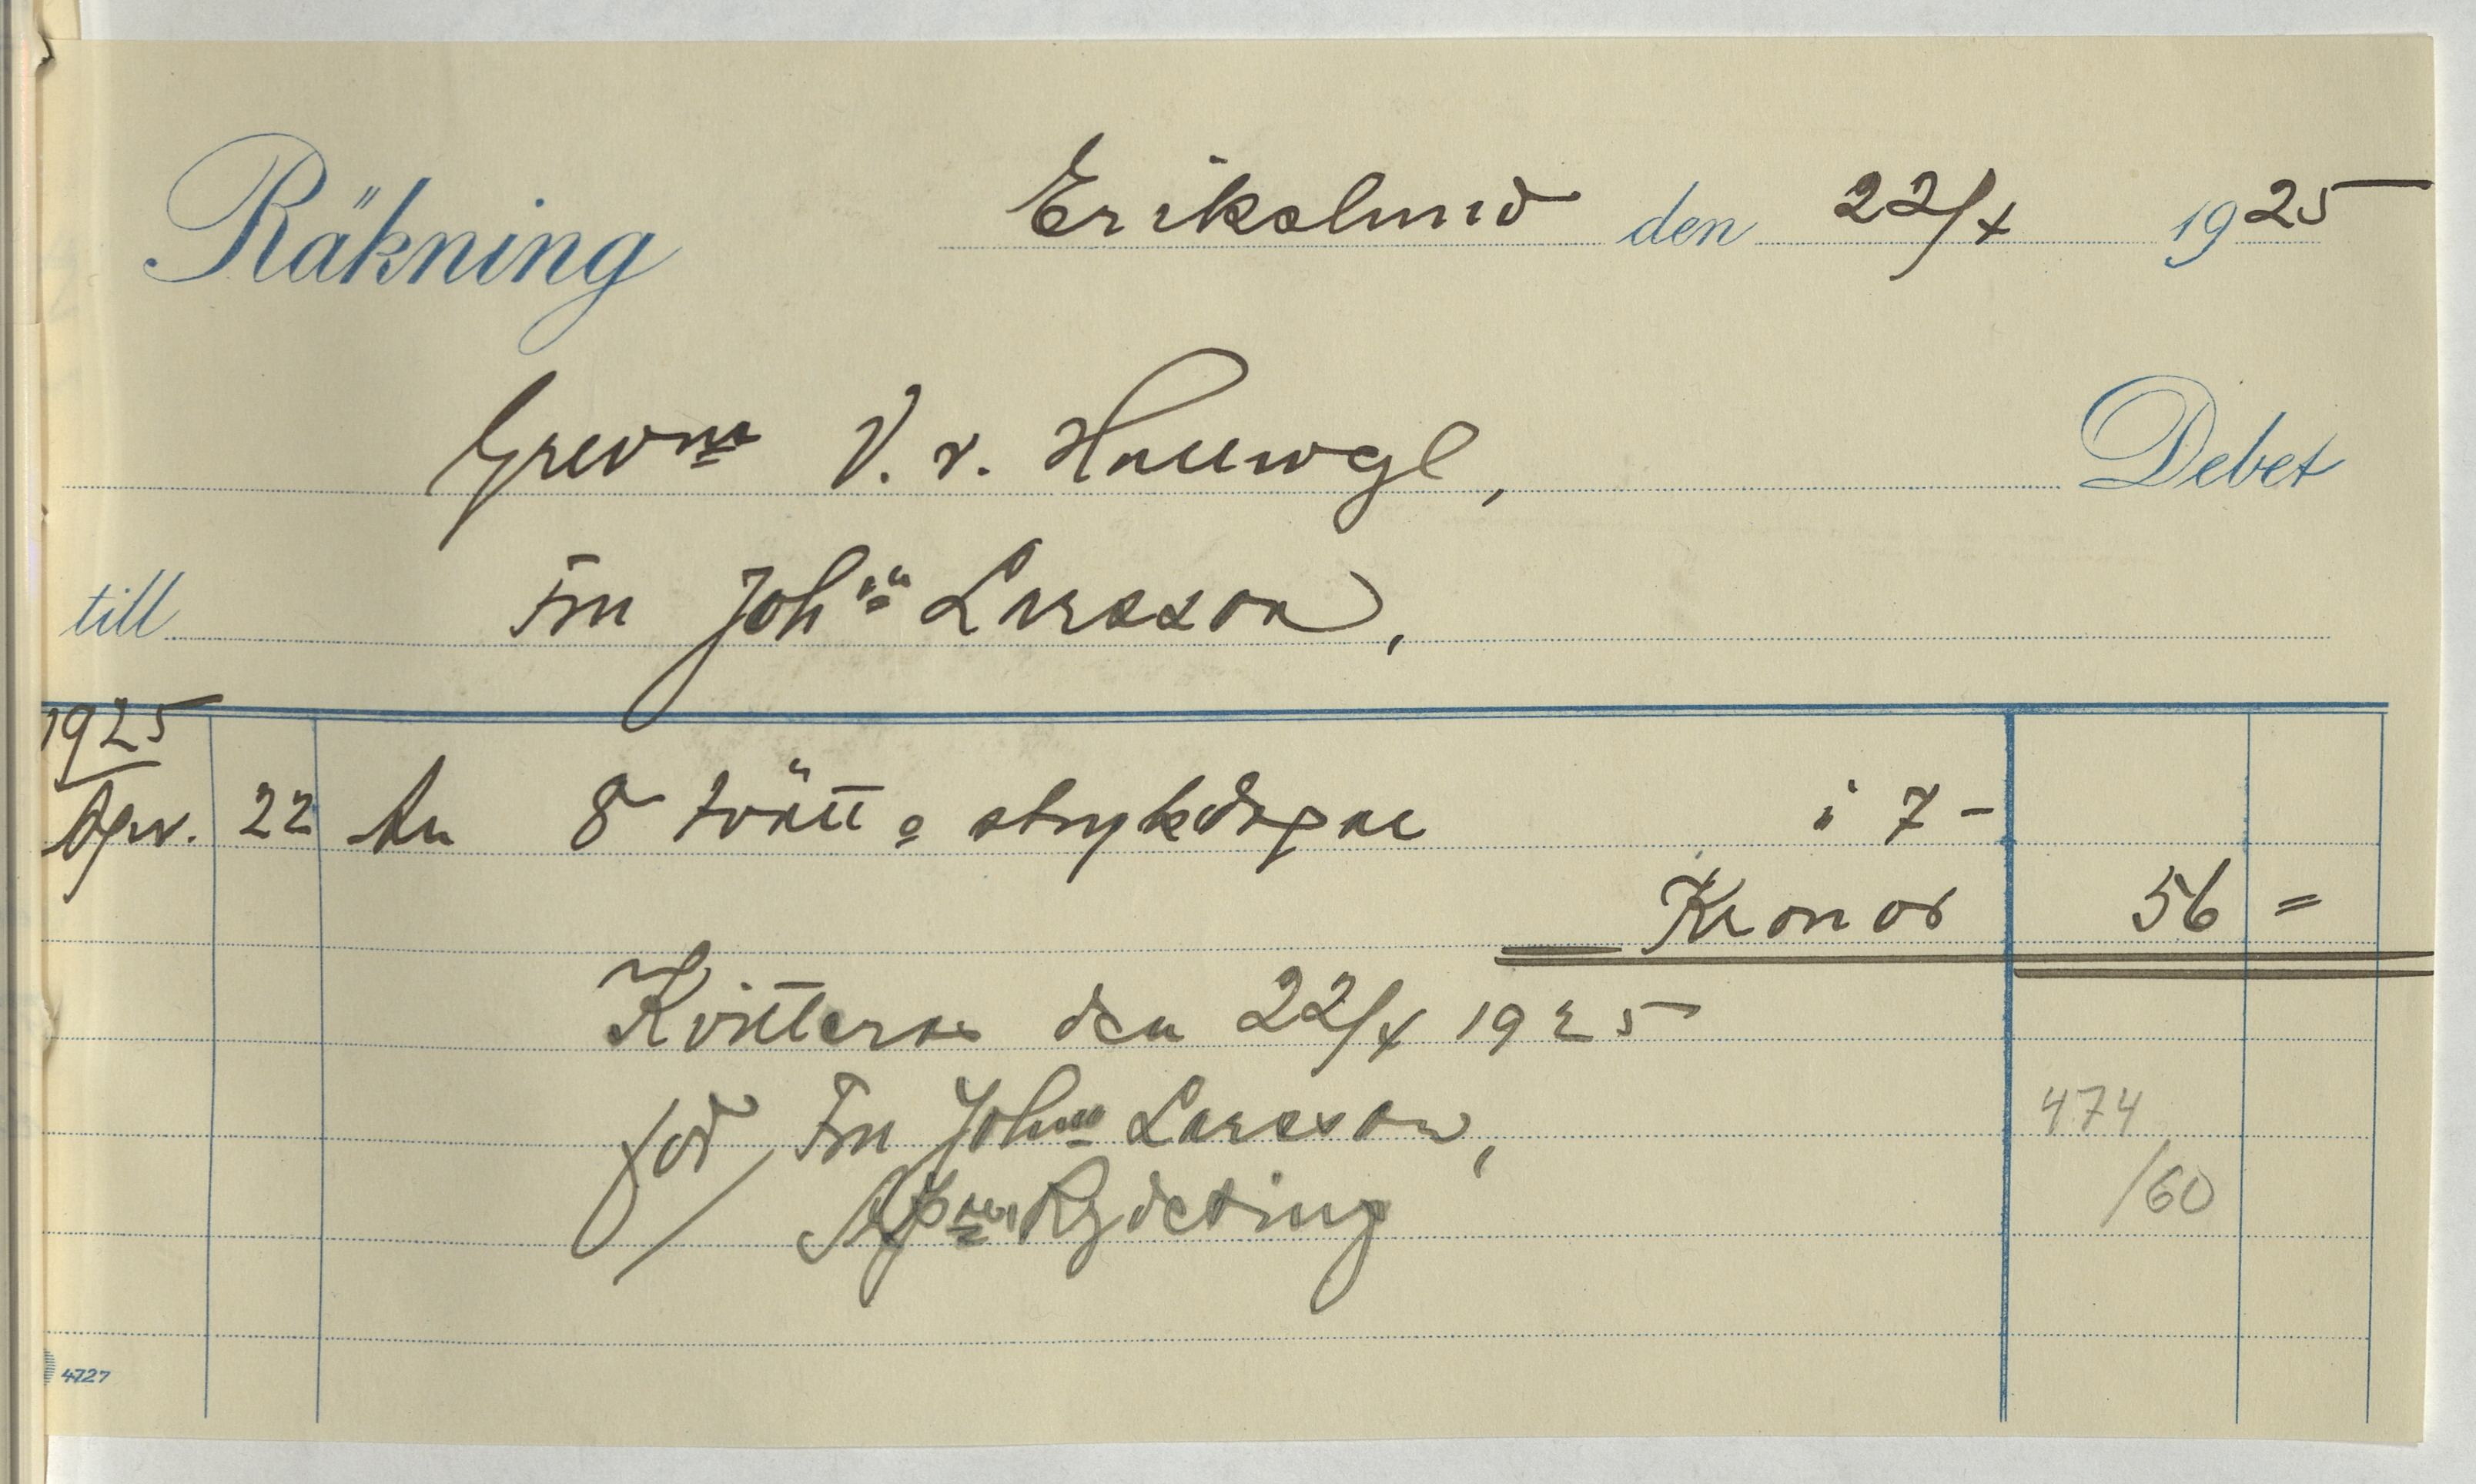 Räkning Erikslund den 22/4 1925
Grevin V. v. Hallwyl, Debet
till Fru Joh:a Larsson,
1925
Apr. 22 An 8 tvätt o strykdagar à 7 -
Kronor 56 =
Kvitteras den 22/4 1925
för Fru Johna Larsson,
474
/60
4727